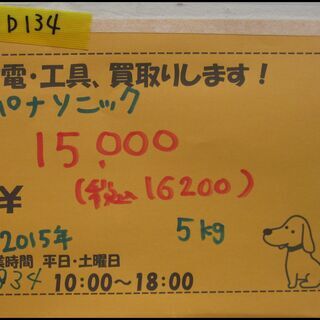 D134
電・工具、買取りします!
パナソニック
15,000
¥
(税込16200)
2015年
5kg
業時間 平日・土曜日
D34
10:00～18:00